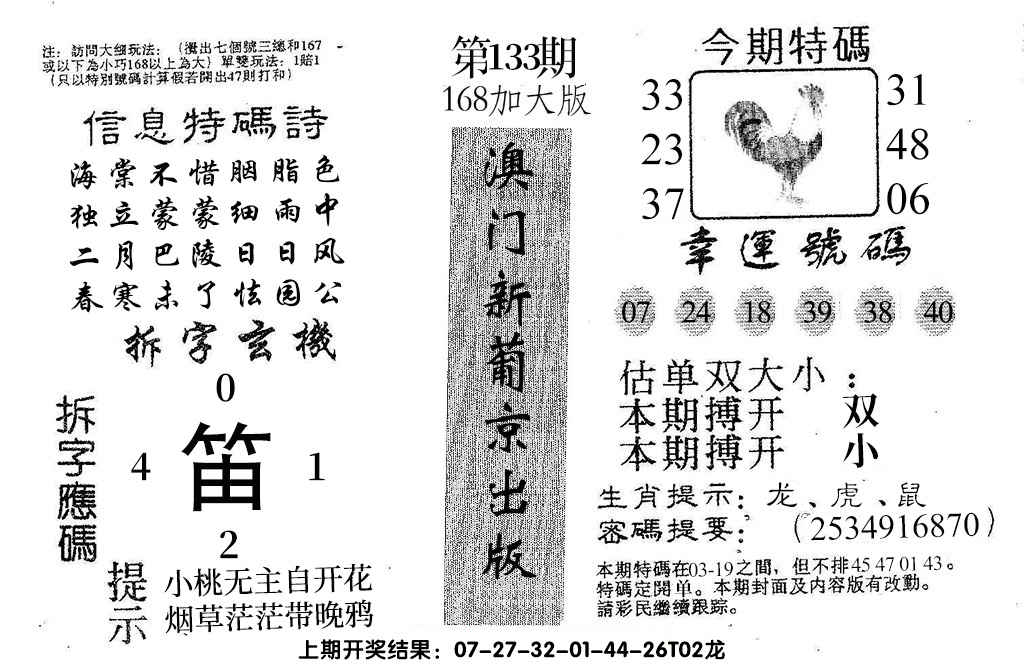 注：訪問大细玩法：（攪出七個號三總和167
或以下為小巧168以上為大）單雙玩法：1賠1
（只以特別號碼計算假若開出47則打和）
信息特碼詩
海棠不惜胭脂色
独立蒙蒙细雨中
二月巴陵日日风
春寒未了怯园公
拆字玄機
拆字應碼
0
4 笛 1
2
提示
小桃无主自开花
烟草茫茫带晚鸦
第133期
168加大版
澳门新葡京出版
今期特碼
33 31
23 48
37 06
幸運號碼
07 24 18 39 38 40
估单双大小：
本期搏开 双
本期搏开 小
生肖提示：龙、虎、鼠
密碼提要：（2534916870）
本期特碼在03-19之間，但不排45 47 01 43。
特碼定開单。本期封面及内容版有改動。
請彩民繼續跟踪。
上期开奖结果：07-27-32-01-44-26T02龙